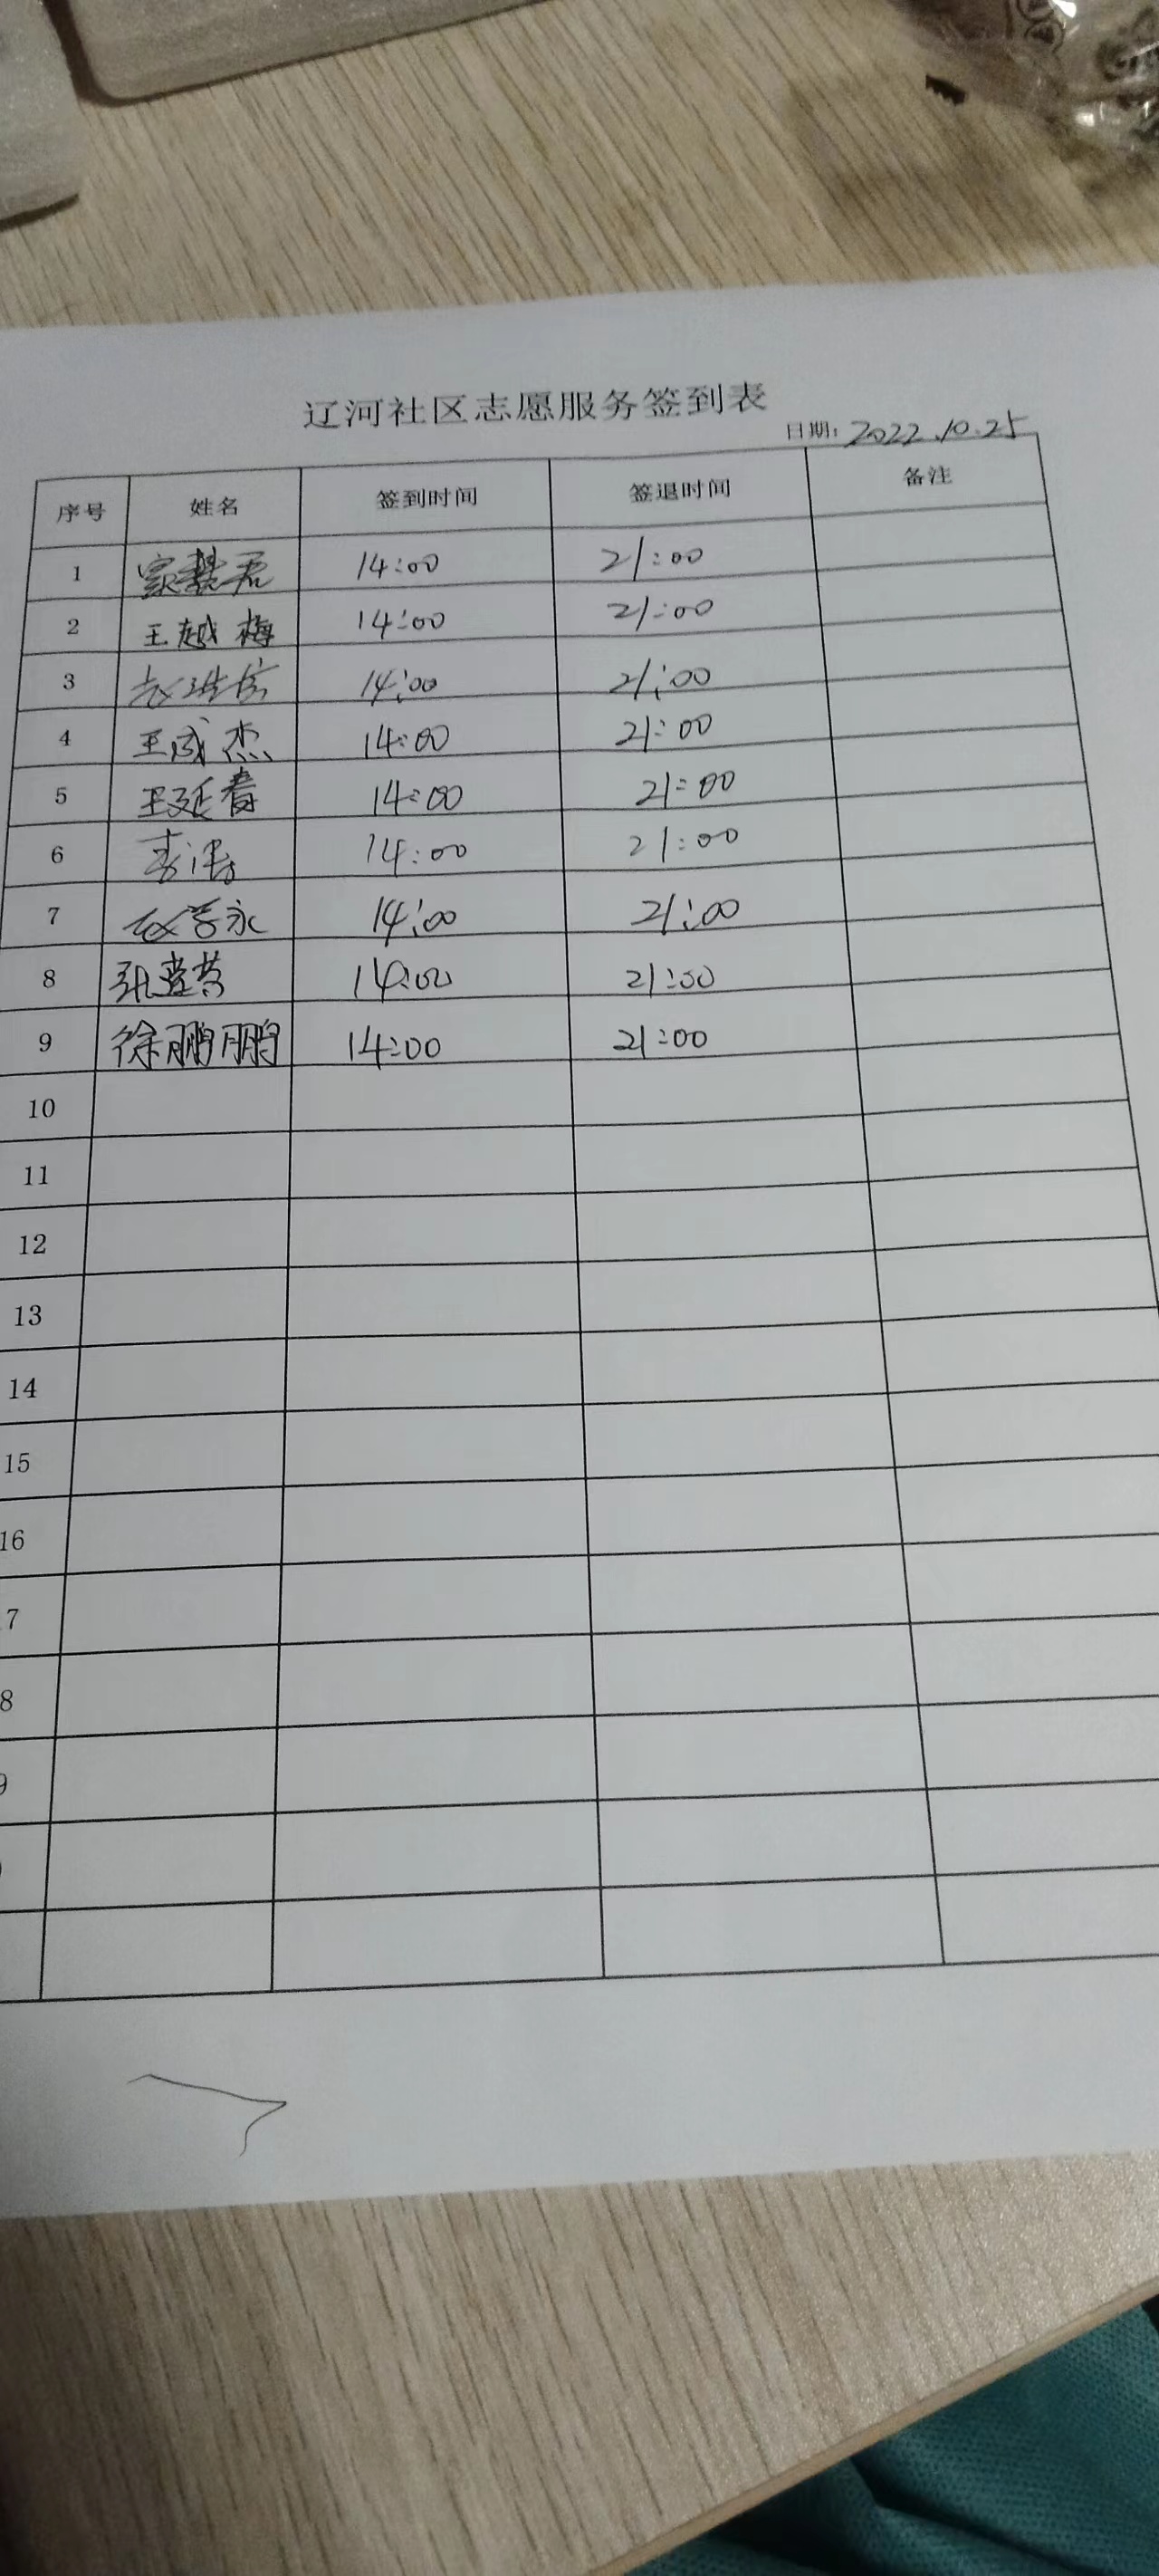 辽河社区志愿服务签到表
日期: 2022.10.25
序号 姓名 签到时间 签退时间 备注
1 14:00 21:00
2 王越梅 14:00 21:00
3 14:00 21:00
4 王成杰 14:00 21:00
5 王延春 14:00 21:00
6 李涛 14:00 21:00
7 14:00 21:00
8 14:00 21:00
9 徐鹏鹏 14:00 21:00
10
11
12
13
14
15
16
7
8
9